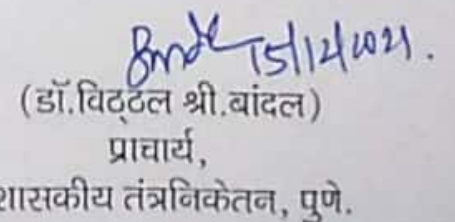 15/12/2021.
(डॉ.विठ्ठल श्री.बांदल)
प्राचार्य,
शासकीय तंत्रनिकेतन, पुणे.